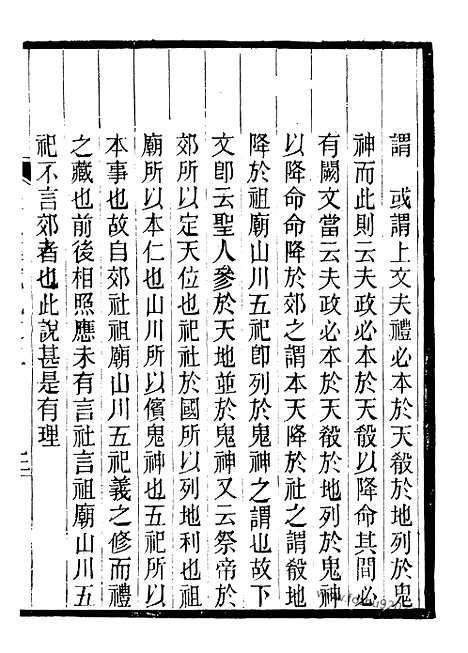 謂　或謂上文夫禮必本於天殽於地列於鬼
神而此則云夫政必本於天殽以降命其間必
有闕文當云夫政必本於天殽於地列於鬼神
以降命命降於郊之謂本天降於社之謂殽地
降於祖廟山川五祀卽列於鬼神之謂也故下
文卽云聖人參於天地並於鬼神又云祭帝於
郊所以定天位也祀社於國所以列地利也祖
廟所以本仁也山川所以儐鬼神也五祀所以
本事也故自郊社祖廟山川五祀義之修而禮
之藏也前後相照應未有言社言祖廟山川五
祀不言郊者也此說甚是有理